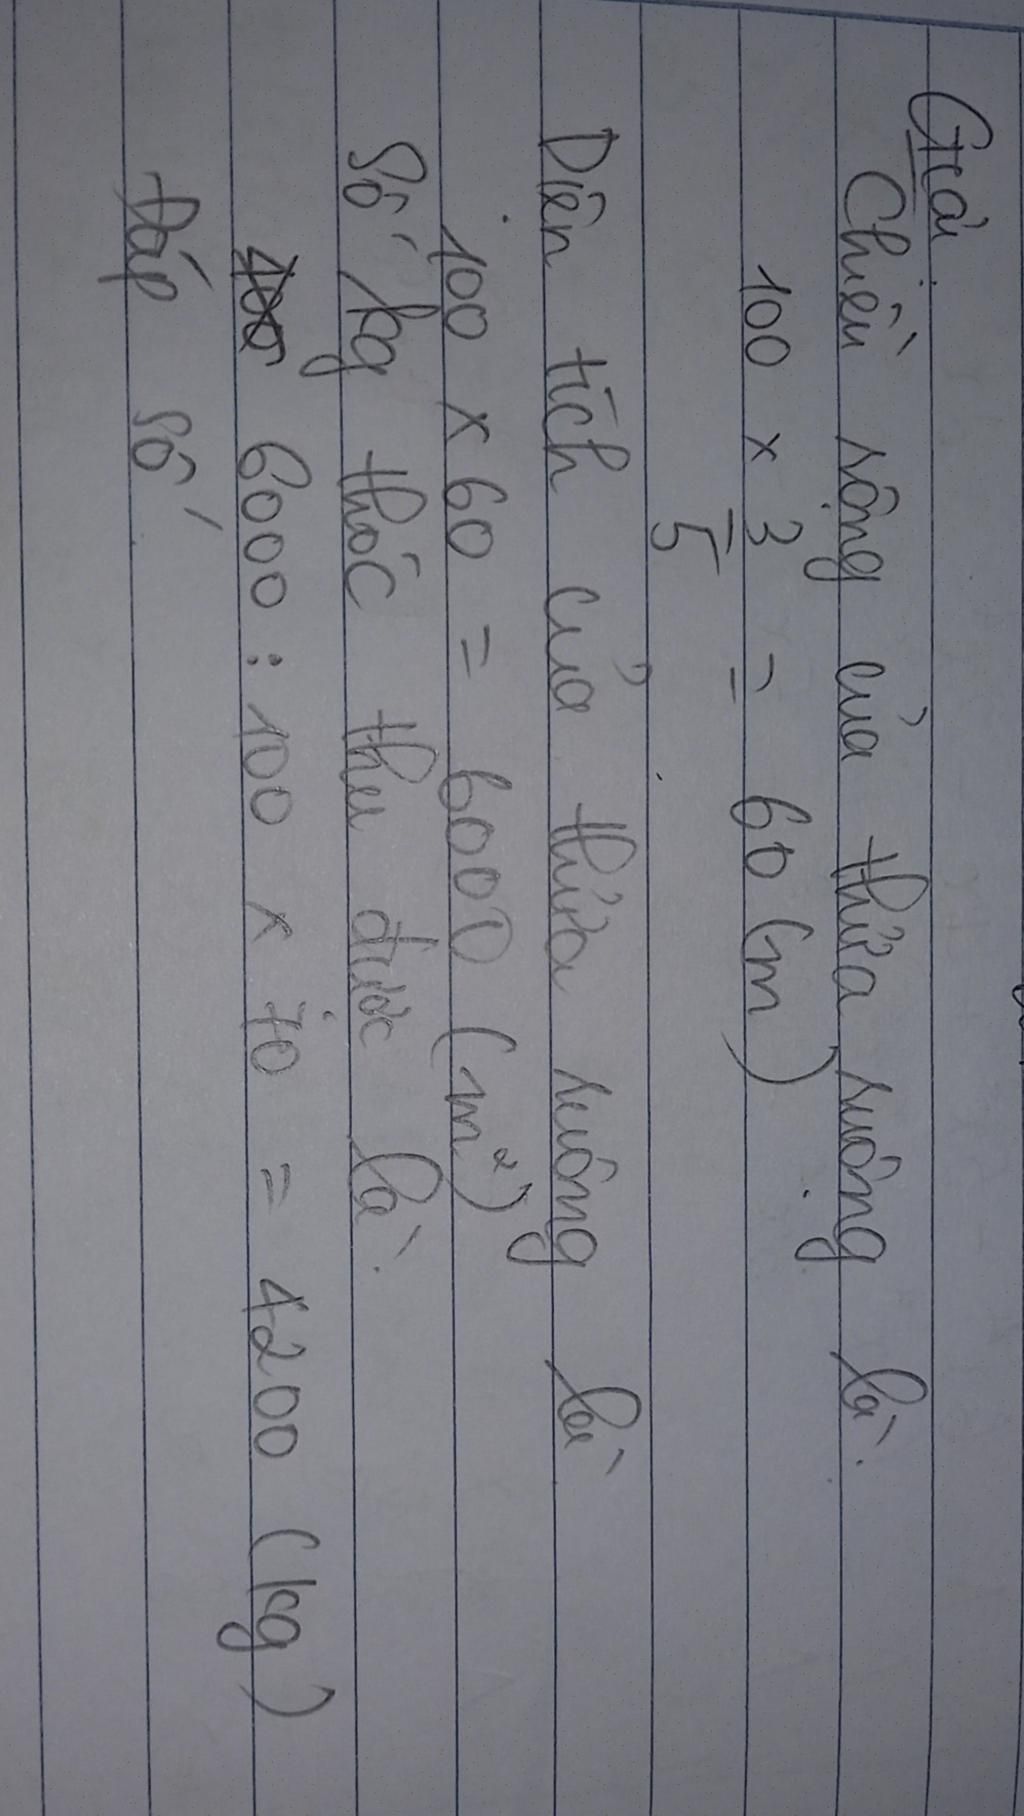 Giải
Chiều rộng của thửa ruộng là.
100 x 3/5 = 60 (m)
Diện tích của thửa ruộng là
100 x 60 = 6000 (m²)
Số kg thóc thu được là.
6000 : 100 x 70 = 4200 (kg)
Đáp số